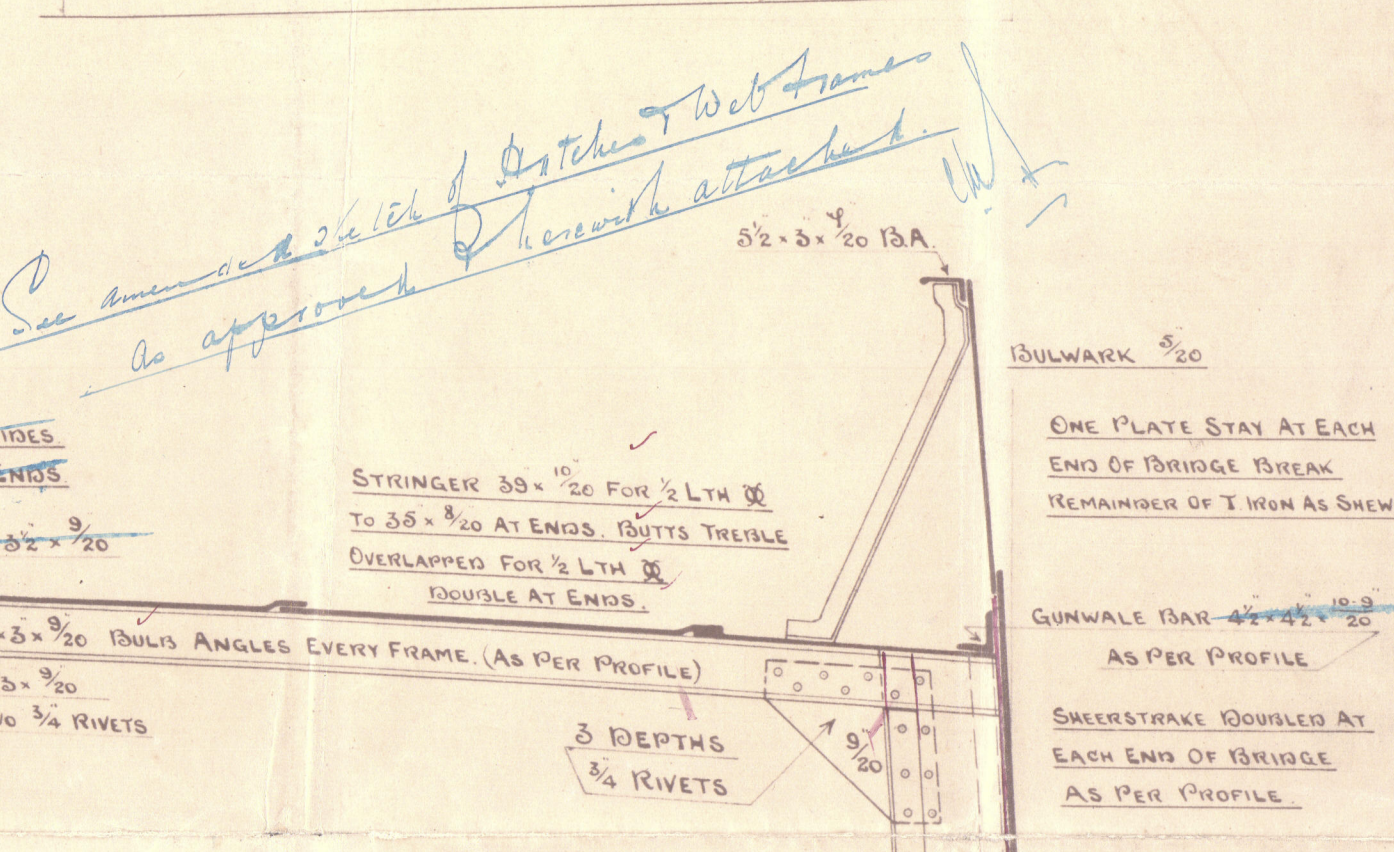 See amended sketch of Hatches & Web frames
as approved & herewith attached.
5½" × 3" × 9/20" B.A.
BULWARK 5/20"
ONE PLATE STAY AT EACH
END OF BRIDGE BREAK
REMAINDER OF T. IRON AS SHEW
IDES.
ENDS.
3½" × 9/20"
STRINGER 39 × 10/20" FOR ½ LTH
TO 35 × 8/20" AT ENDS. BUTTS TREBLE
OVERLAPPED FOR ½ LTH
DOUBLE AT ENDS.
GUNWALE BAR 4½" × 4½" × 10-9/20"
AS PER PROFILE
× 3" × 9/20" BULB ANGLES EVERY FRAME. (AS PER PROFILE)
3 × 9/20"
¾" RIVETS
3 DEPTHS
¾" RIVETS
9/20"
SHEERSTRAKE DOUBLED AT
EACH END OF BRIDGE
AS PER PROFILE.